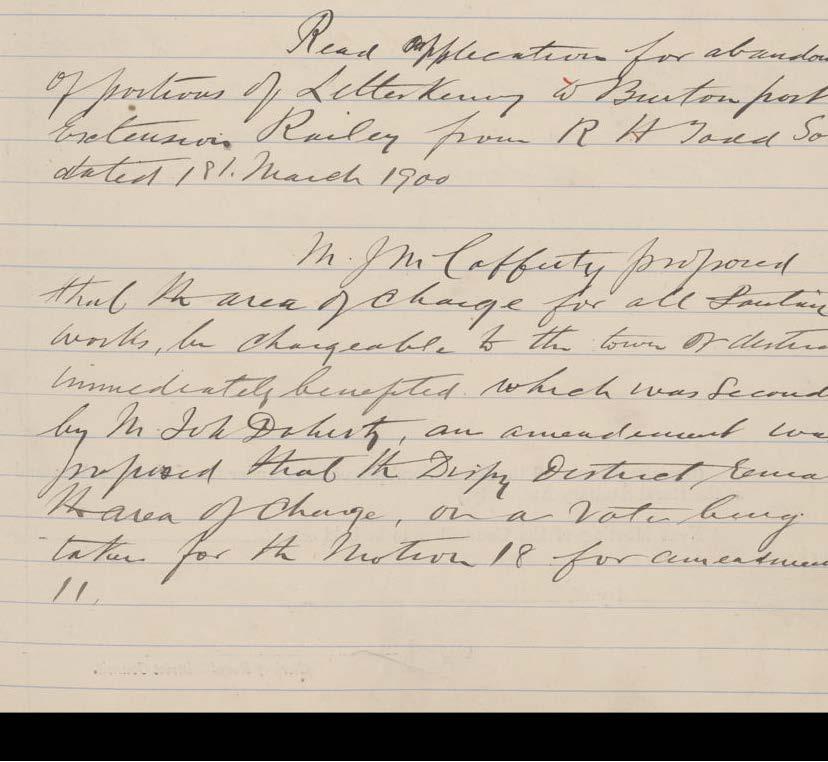 Read application for abandon
of portions of Letterkenny to Burton port
Extension Railey from R H Todd So
dated 181. March 1900
M. J Mc Cafferty proposed
that th area of charge for all Sanita
works, be chargeable to the town or distric
immediately benefited which was second
by M. Joh Doherty, an amendment wa
proposed that th Dispy District remai
th area of Charge, on a vote being
taken for th Motion 18 for amendmen
11.